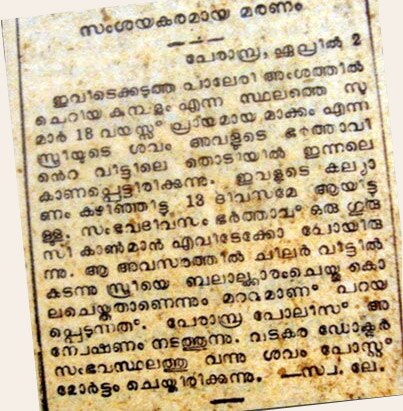 സംശയകരമായ മരണം
പേരാമ്പ്ര, ഏപ്രിൽ 2
ഇവിടെക്കടുത്ത പാലേരി അംശത്തിൽ
ചെറിയ കുമ്പളം എന്ന സ്ഥലത്തെ സു
മാർ 18 വയസ്സു പ്രായമായ മാക്കം എന്ന
സ്ത്രീയുടെ ശവം അവളുടെ ഭർത്താവി
ൻെറ വീട്ടിലെ തൊടിയിൽ ഇന്നലെ
കാണപ്പെട്ടിരിക്കുന്നു. ഇവളുടെ കല്യാ
ണം കഴിഞ്ഞിട്ടു 13 ദിവസമേ ആയിട്ടു
ള്ളു. സംഭവദിവസം ഭർത്താവും ഒരു ഗുരു
സി കാൺമാൻ എവിടേക്കോ പോയിരു
ന്നു. ആ അവസരത്തിൽ ചിലർ വീട്ടിൽ
കടന്നു സ്ത്രീയെ ബലാല്ക്കാരംചെയ്തു കൊ
ലചെയ്തതാണെന്നും മററുമാണ് പറയ
പ്പെടുന്നത്. പേരാമ്പ്ര പോലീസ് അ
ന്വേഷണം നടത്തുന്നു. വടകര ഡോക്ടർ
സംഭവസ്ഥലത്തു വന്നു ശവം പോസ്റ്റു
മോർട്ടം ചെയ്തിരിക്കുന്നു. —സ്വ. ലേ.